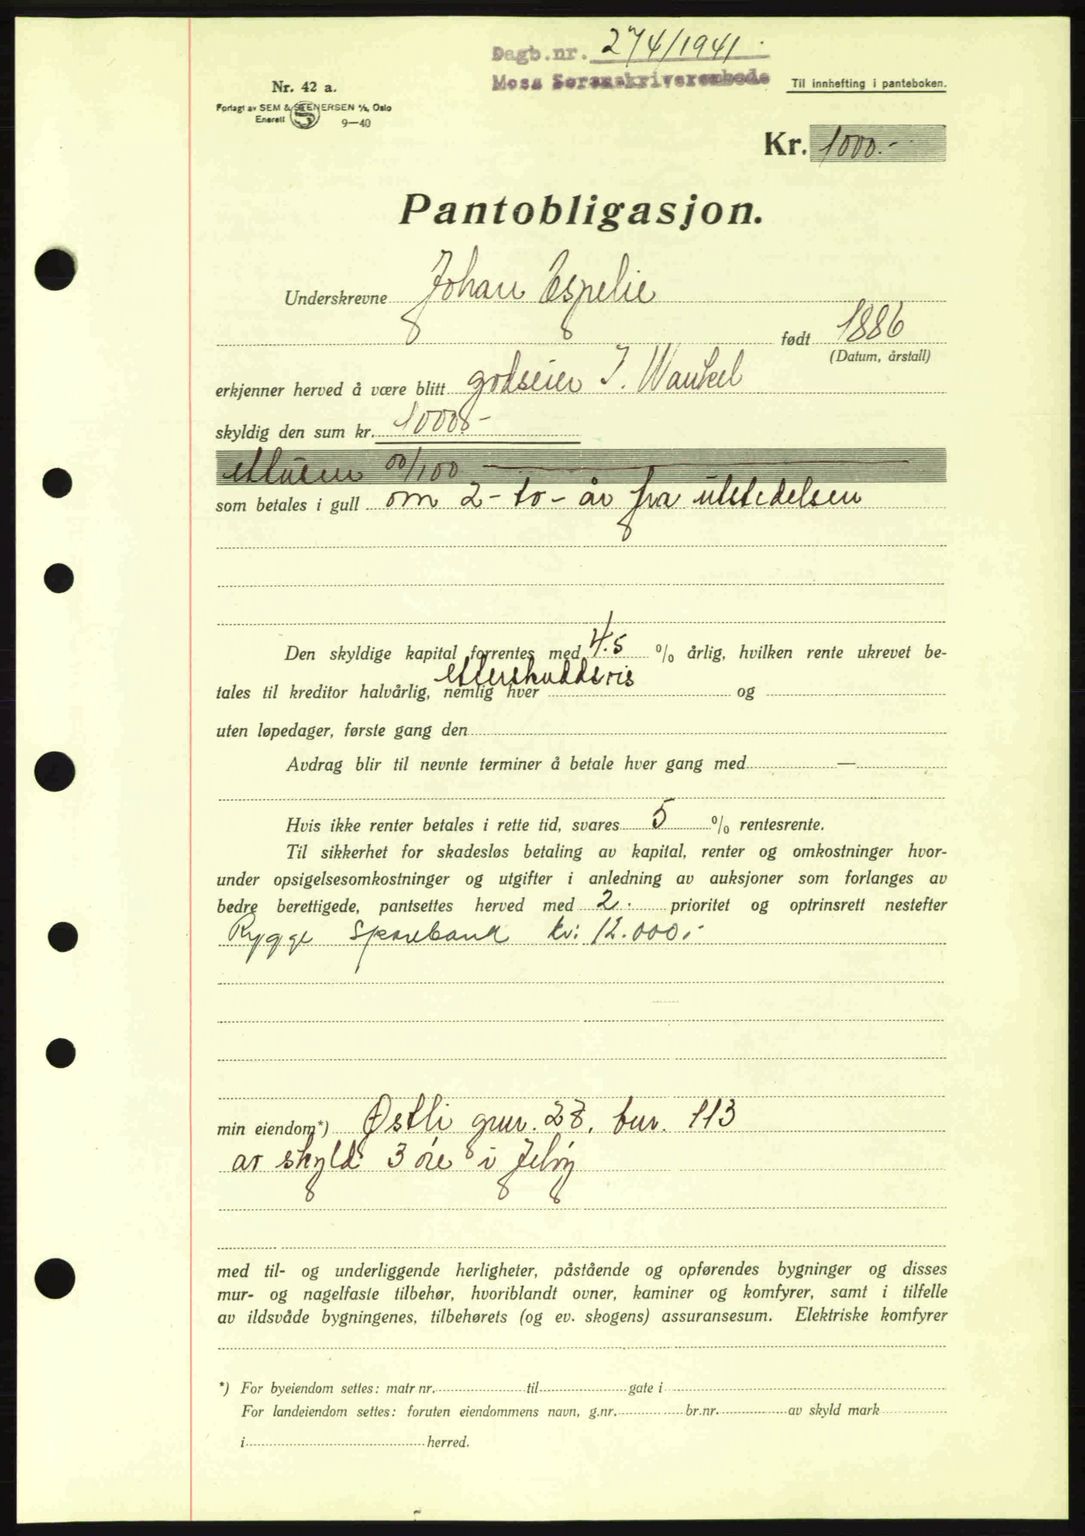 Dagb.nr. 274/1941.
Moss Sorenskriverembede
Til innhefting i panteboken.
Nr. 42 a.
Forlagt av SEM & STENERSEN A/S, Oslo
Enerett 9—40
Kr. 1000.-
Pantobligasjon.
Underskrevne Johan Espelie
født 1886
(Datum, årstall)
erkjenner herved å være blitt godseier J. Wankel
skyldig den sum kr. 1000-
ettusen 00/100
som betales i gull om 2 - to - år fra utstedelsen
Den skyldige kapital forrentes med 4.5 % årlig, hvilken rente ukrevet be-
etterskuddsvis
tales til kreditor halvårlig, nemlig hver og
uten løpedager, første gang den
Avdrag blir til nevnte terminer å betale hver gang med —
Hvis ikke renter betales i rette tid, svares 5 % rentesrente.
Til sikkerhet for skadesløs betaling av kapital, renter og omkostninger hvor-
under opsigelsesomkostninger og utgifter i anledning av auksjoner som forlanges av
bedre berettigede, pantsettes herved med 2. prioritet og optrinsrett nestefter
Rygge Sparebank kr: 12.000.-
min eiendom*) Østli gnr. 28, bnr. 113
av skyld 3 øre i Jeløy
med til- og underliggende herligheter, påstående og opførendes bygninger og disses
mur- og nagelfaste tilbehør, hvoriblandt ovner, kaminer og komfyrer, samt i tilfelle
av ildsvåde bygningenes, tilbehørets (og ev. skogens) assuransesum. Elektriske komfyrer
*) For byeiendom settes: matr nr. til gate i
For landeiendom settes: foruten eiendommens navn, g.nr. br.nr. av skyld mark
i herred.